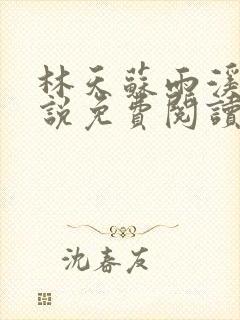 林天蘇雨溪
說免費閱讀
沈春友